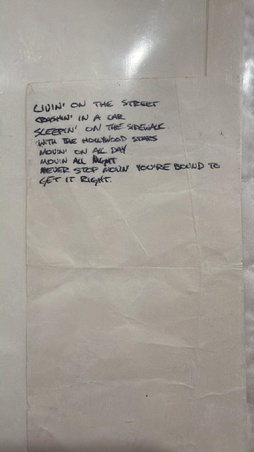 LIVIN' ON THE STREET
CRASHIN' IN A CAR
SLEEPIN' ON THE SIDEWALK
WITH THE HOLLYWOOD STARS
MOVIN' ON ALL DAY
MOVIN ALL NIGHT
NEVER STOP MOVIN YOU'RE BOUND TO
GET IT RIGHT.